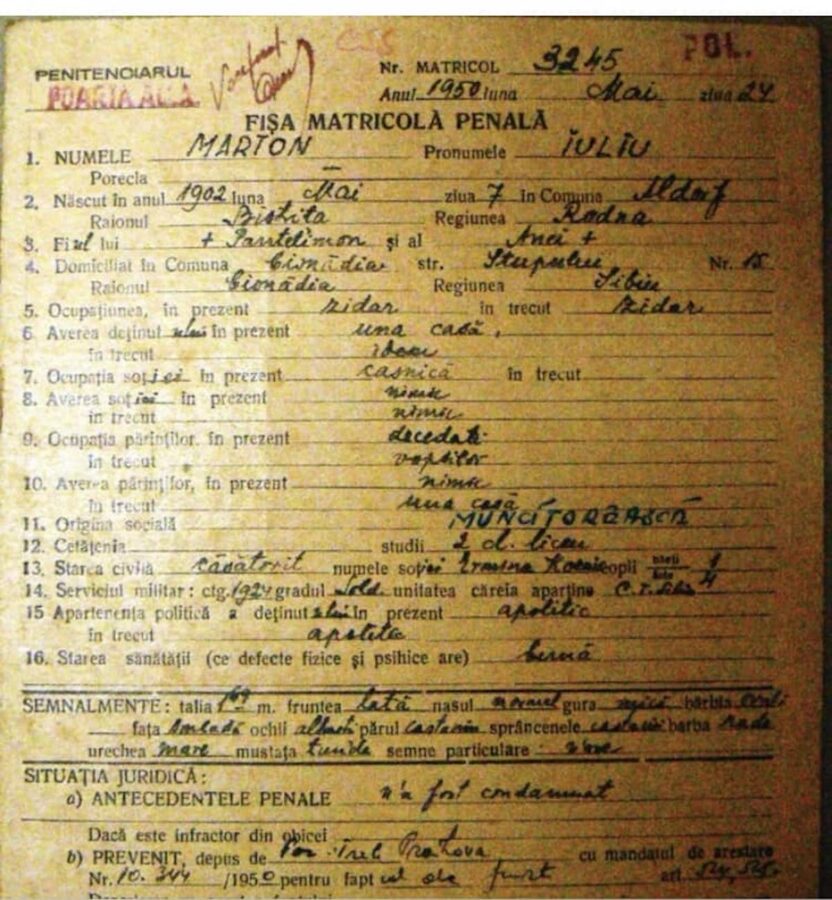 POL.
PENITENCIARUL
POARTA ALBA
Nr. MATRICOL 3245
Anul 1950 luna Mai ziua 24
FIȘA MATRICOLĂ PENALĂ
1. NUMELE MARTON Pronumele IULIU
Porecla
2. Născut în anul 1902 luna Mai ziua 7 în Comuna
Raionul Bistrita Regiunea Rodna
3. Fiul lui + Pantelimon și al Anei +
4. Domiciliat în Comuna Cisnădia str. Nr. 15
Raionul Cisnădia Regiunea Sibiu
5. Ocupațiunea, în prezent zidar în trecut zidar
6. Averea deținutului în prezent una casă,
în trecut idem
7. Ocupația soției în prezent casnică în trecut
8. Averea soției în prezent nimic
în trecut nimic
9. Ocupația părinților, în prezent decedați
în trecut
10. Averea părinților, în prezent nimic
în trecut una casă
11. Origina socială MUNCITOREASCĂ
12. Cetățenia studii 2 cl. liceu
13. Starea civilă căsătorit numele soției copii băeți 1
fete 4
14. Serviciul militar: ctg. 1924 gradul Sold. unitatea căreia aparține C.T. Sibiu
15 Apartenența politică a deținutului în prezent apolitic
în trecut apolitic
16. Starea sănătății (ce defecte fizice și psihice are) bună
SEMNALMENTE: talia 1 69 m. fruntea lată nasul normal gura mică bărbia
fața ochii albaștri părul castaniu sprâncenele castanii barba rade
urechea mare mustața tunde semne particulare n'are
SITUAȚIA JURIDICĂ:
a) ANTECEDENTELE PENALE n'a fost condamnat
Dacă este infractor din obicei
b) PREVENIT, depus de Trib Prahova cu mandatul de arestare
Nr. 10.344 /1950 pentru faptul de furt art.